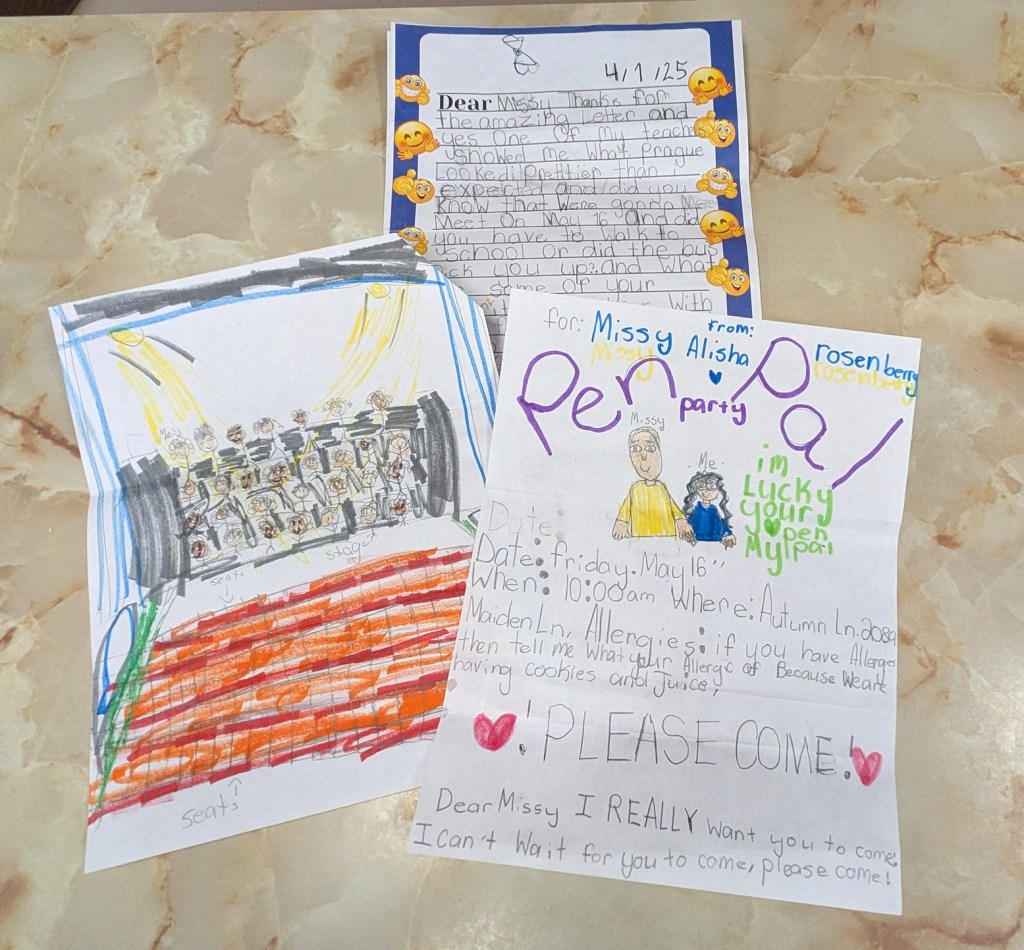 4/1/25
Dear Missy Thanks for
the amazing Letter and
yes One Of My teache
showed me What Prague
Looked! Prettier than i
expected and did you
Know that Were gonna Meet
Meet On May 16 and did
you have to walk to
school Or did the bus
ck you up? and What
some Of your
With
for: Missy
Missy
from:
Alisha
rosenberry
rosenberry
Pen Pal
party
Missy
Me
im
Lucky
your
pen
My pal
Date:
Date: friday. May 16
When: 10:00am Where: Autumn Ln. 2089
Maiden Ln, Allergies: if you have Allergies
then tell me What your Allergic of Because We are
having cookies and Juice,
! PLEASE COME!
Dear Missy I REALLY want you to come,
I can't Wait for you to come, please come!
Me
stage
seats
seats